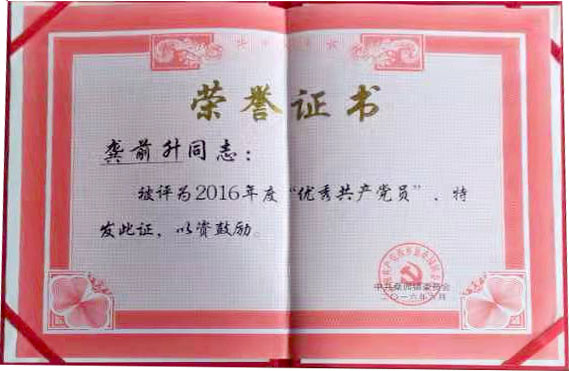 荣誉证书
龚前升同志：
被评为2016年度“优秀共产党员”，特
发此证，以资鼓励。
二〇一六年六月